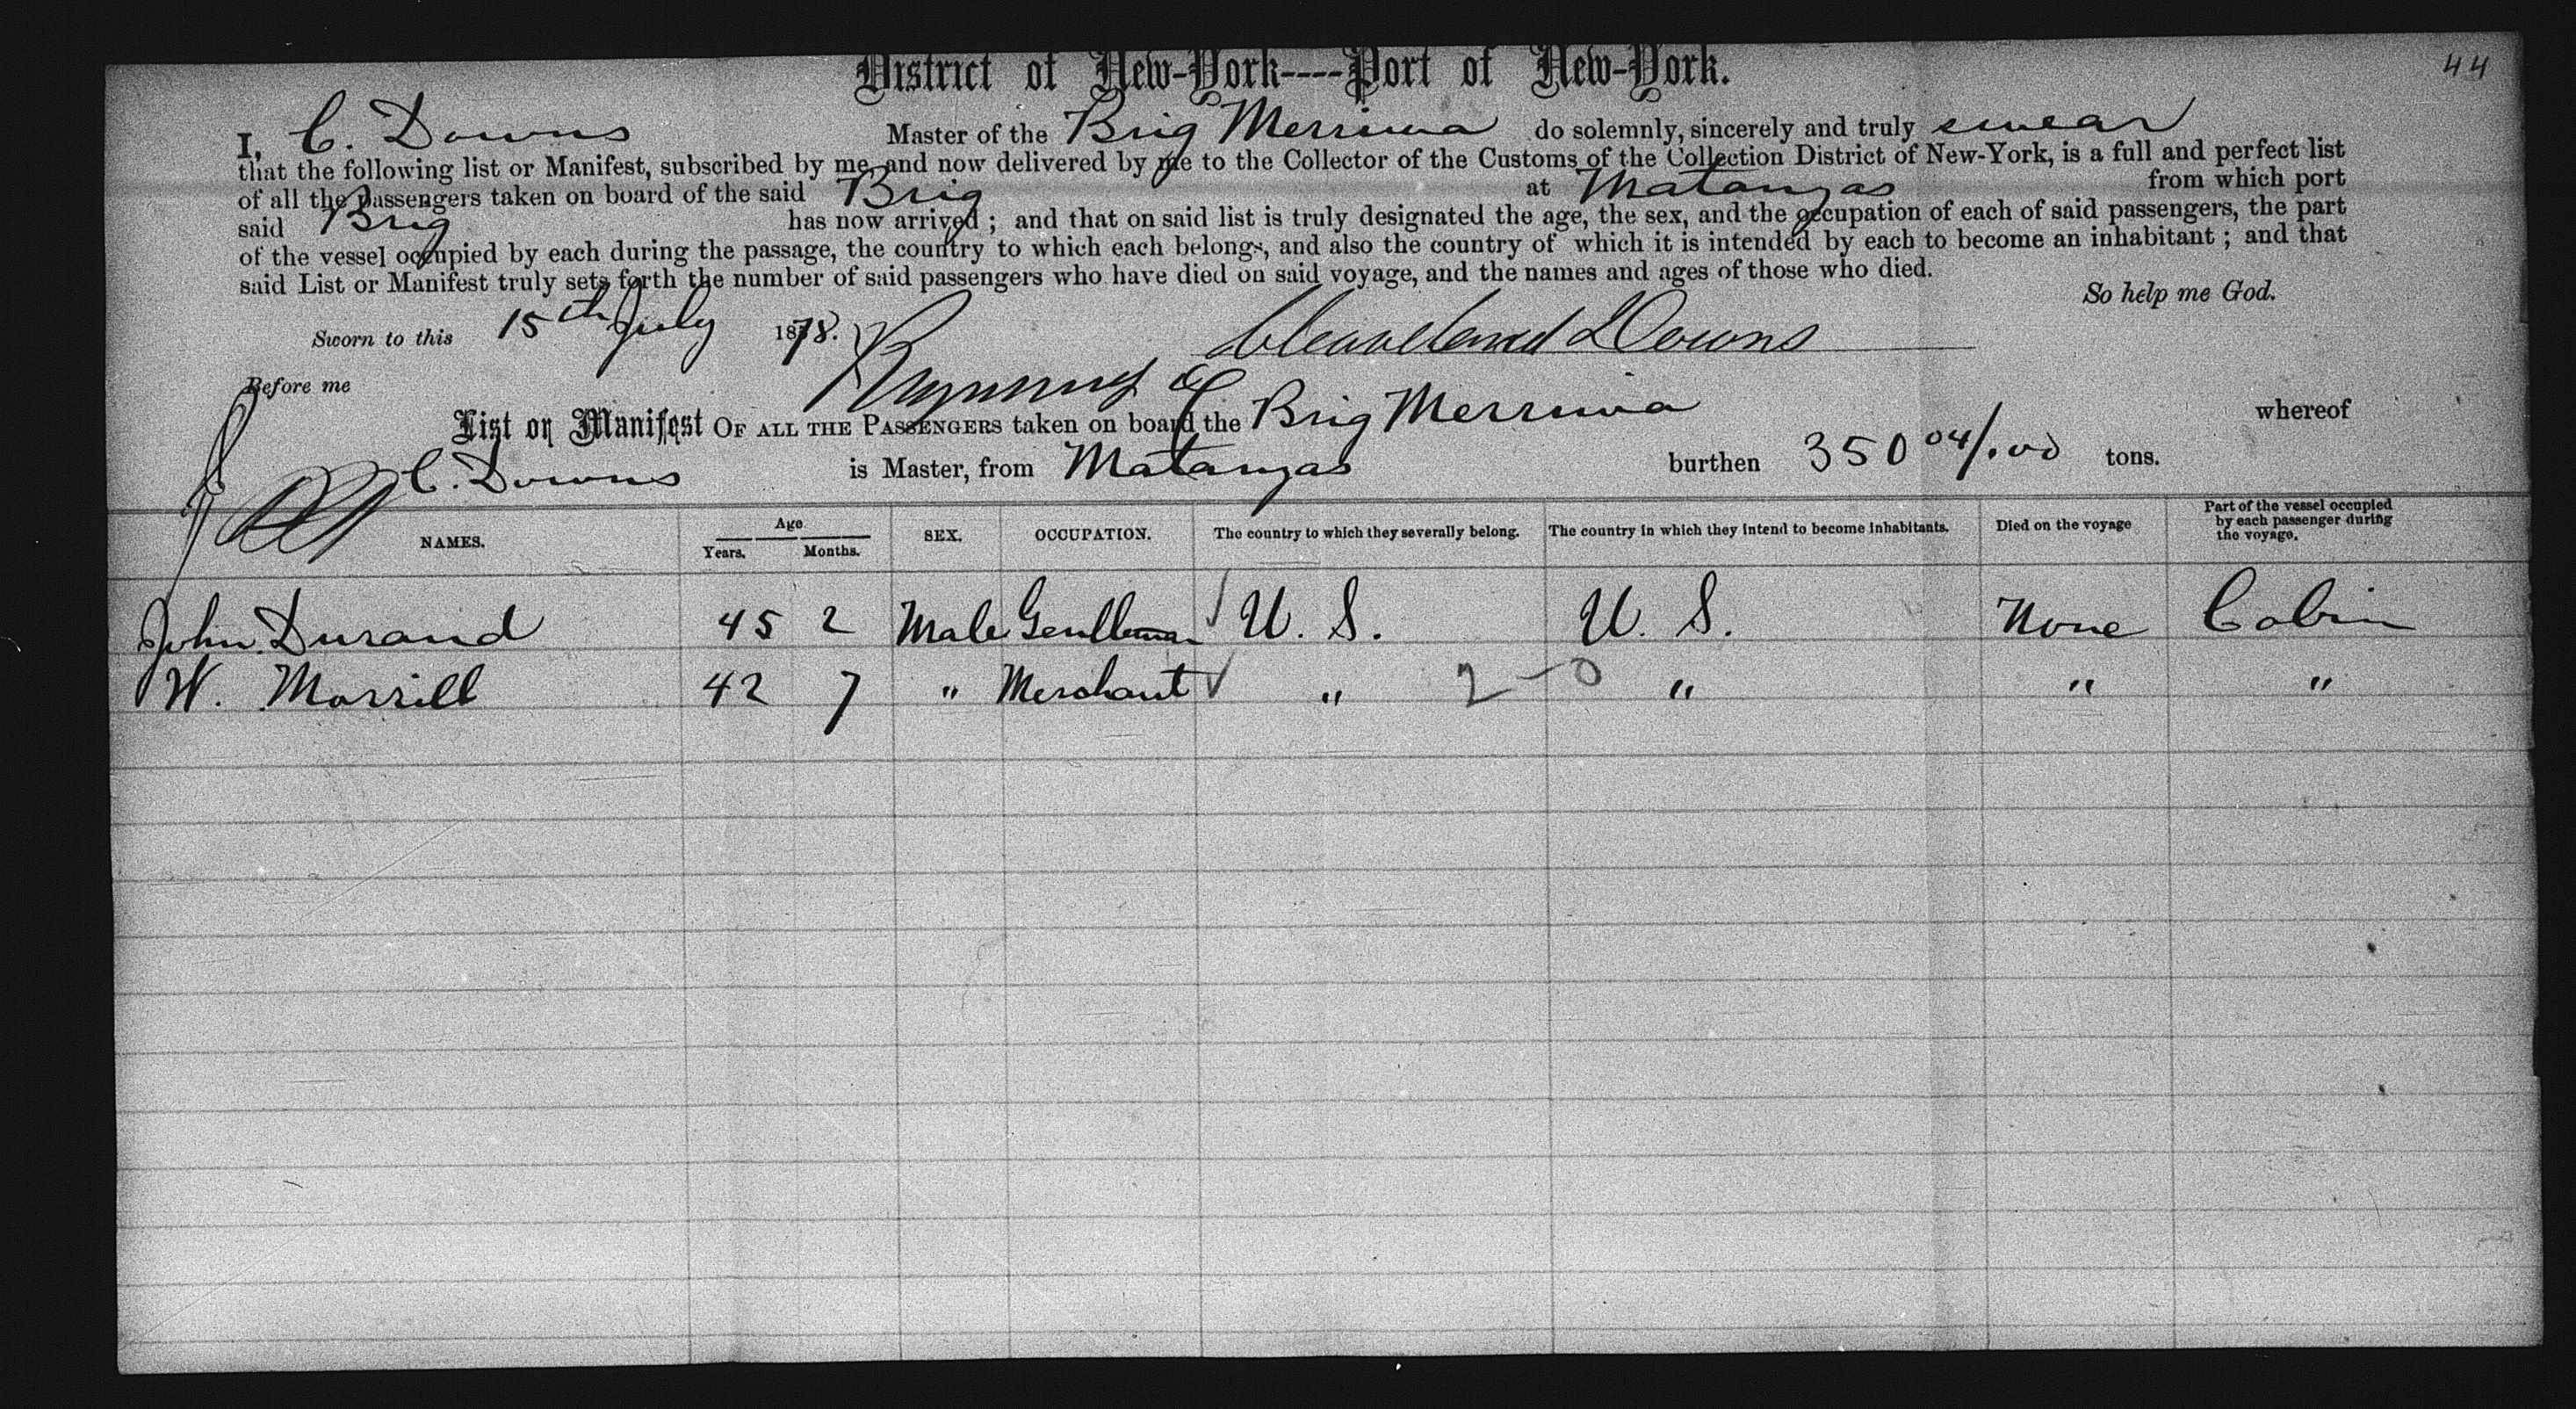 44
District of New-York----Port of New-York.
I, C. Downs Master of the Brig Merriwa do solemnly, sincerely and truly swear
that the following list or Manifest, subscribed by me, and now delivered by me to the Collector of the Customs of the Collection District of New-York, is a full and perfect list
of all the passengers taken on board of the said Brig at Matanzas from which port
said Brig has now arrived ; and that on said list is truly designated the age, the sex, and the occupation of each of said passengers, the part
of the vessel occupied by each during the passage, the country to which each belongs, and also the country of which it is intended by each to become an inhabitant ; and that
said List or Manifest truly sets forth the number of said passengers who have died on said voyage, and the names and ages of those who died.
So help me God.
Sworn to this 15th July 1878. Cleaveland Downs
Before me
List or Manifest OF ALL THE PASSENGERS taken on board the Brig Merriwa whereof
C. Downs is Master, from Matanzas burthen 350 04/.00 tons.
NAMES. Age Years. Months. SEX. OCCUPATION. The country to which they severally belong. The country in which they intend to become inhabitants. Died on the voyage Part of the vessel occupied by each passenger during the voyage.
John Durand 45 2 Male Gentleman U. S. U. S. None Cabin
W. Morrill 42 7 " Merchant " 2-0 " " "